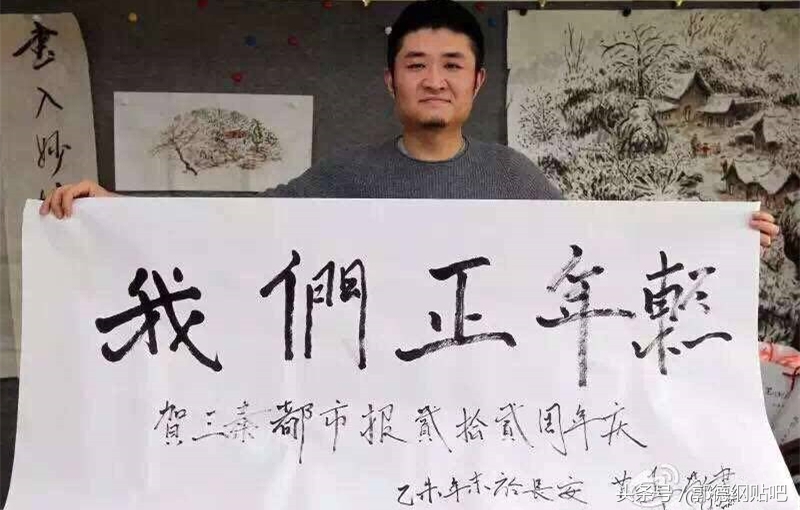 畫入妙
我們正年輕
賀三秦都市报貳拾貳周年庆
乙未年末於長安
头条号/郭德纲贴吧